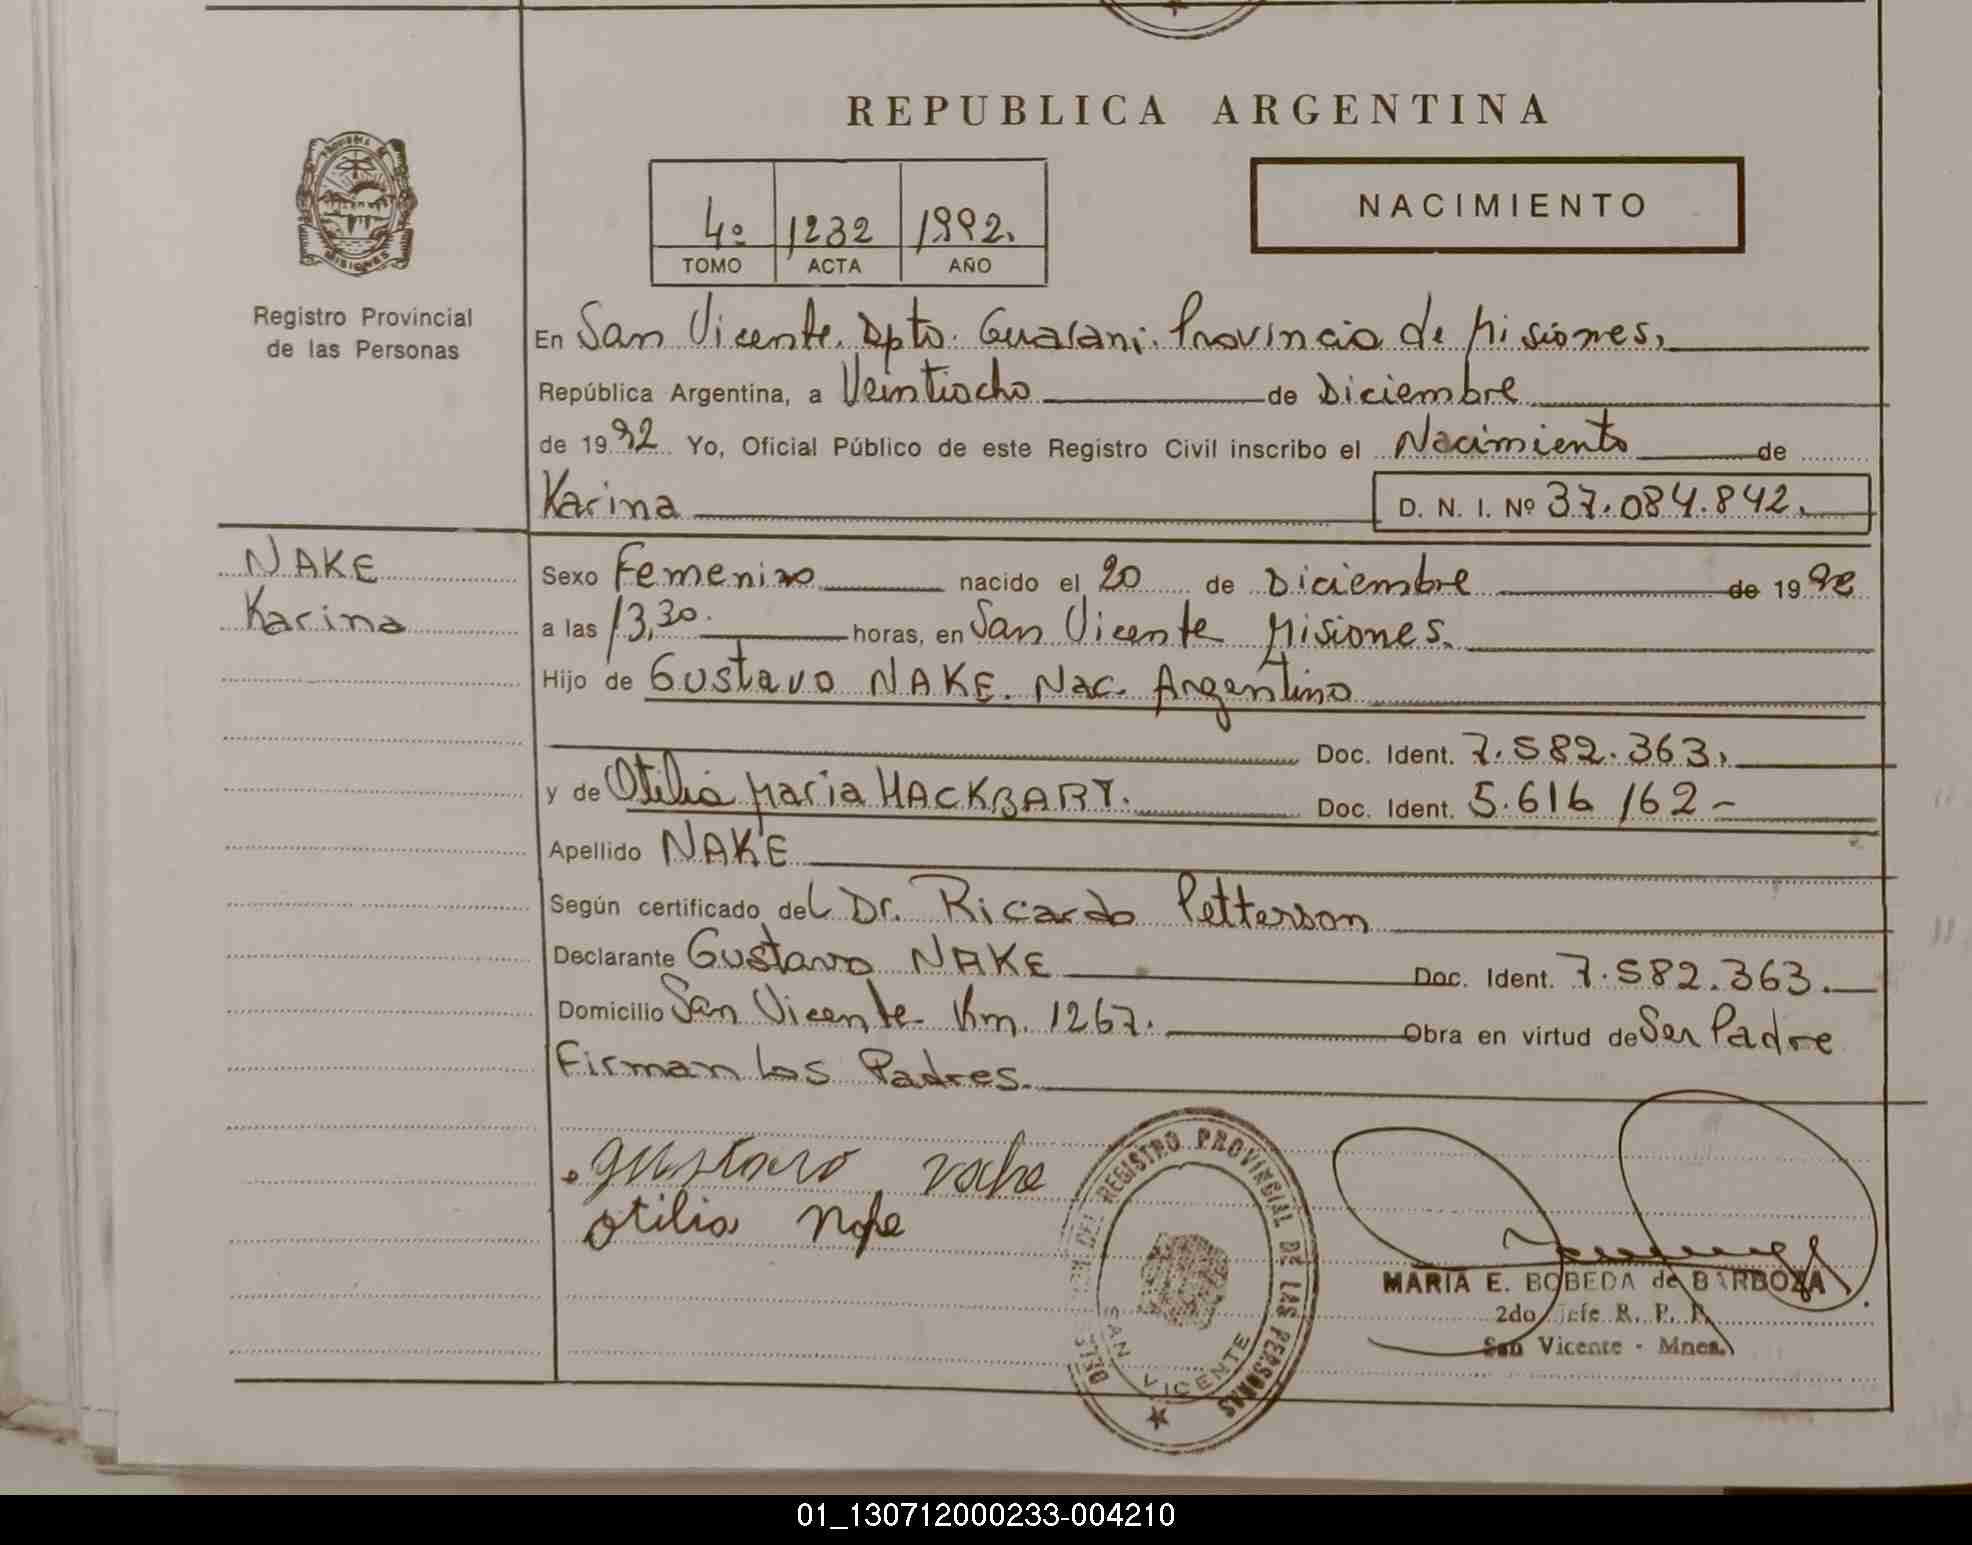 REPUBLICA ARGENTINA
NACIMIENTO
4º 1232 1992.
TOMO ACTA AÑO
Registro Provincial
de las Personas
En San Vicente. Dpto. Guarani. Provincia de Misiones,
República Argentina, a Veintiocho de Diciembre
de 1992 Yo, Oficial Público de este Registro Civil inscribo el Nacimiento de
Karina D. N. I. Nº 37.084.842.
NAKE
Karina
Sexo Femenino nacido el 20 de Diciembre de 1992
a las 13,30. horas, en San Vicente Misiones.
Hijo de Gustavo NAKE. Nac. Argentino
Doc. Ident. 7.582.363.
y de Otilia Maria HACKBART. Doc. Ident. 5.616 162-
Apellido NAKE
Según certificado del Dr. Ricardo Petterson
Declarante Gustavo NAKE Doc. Ident. 7.582.363.
Domicilio San Vicente Km. 1267. Obra en virtud de Ser Padre
Firman los Padres.
gustavo nake
otilia nake
DEL REGISTRO PROVINCIAL DE LAS PERSONAS
SAN VICENTE
MARIA E. BOBEDA de BARBOZA
2do Jefe R. P. P.
San Vicente - Mnes.
PROVINCIA
MISIONES
01_130712000233-004210